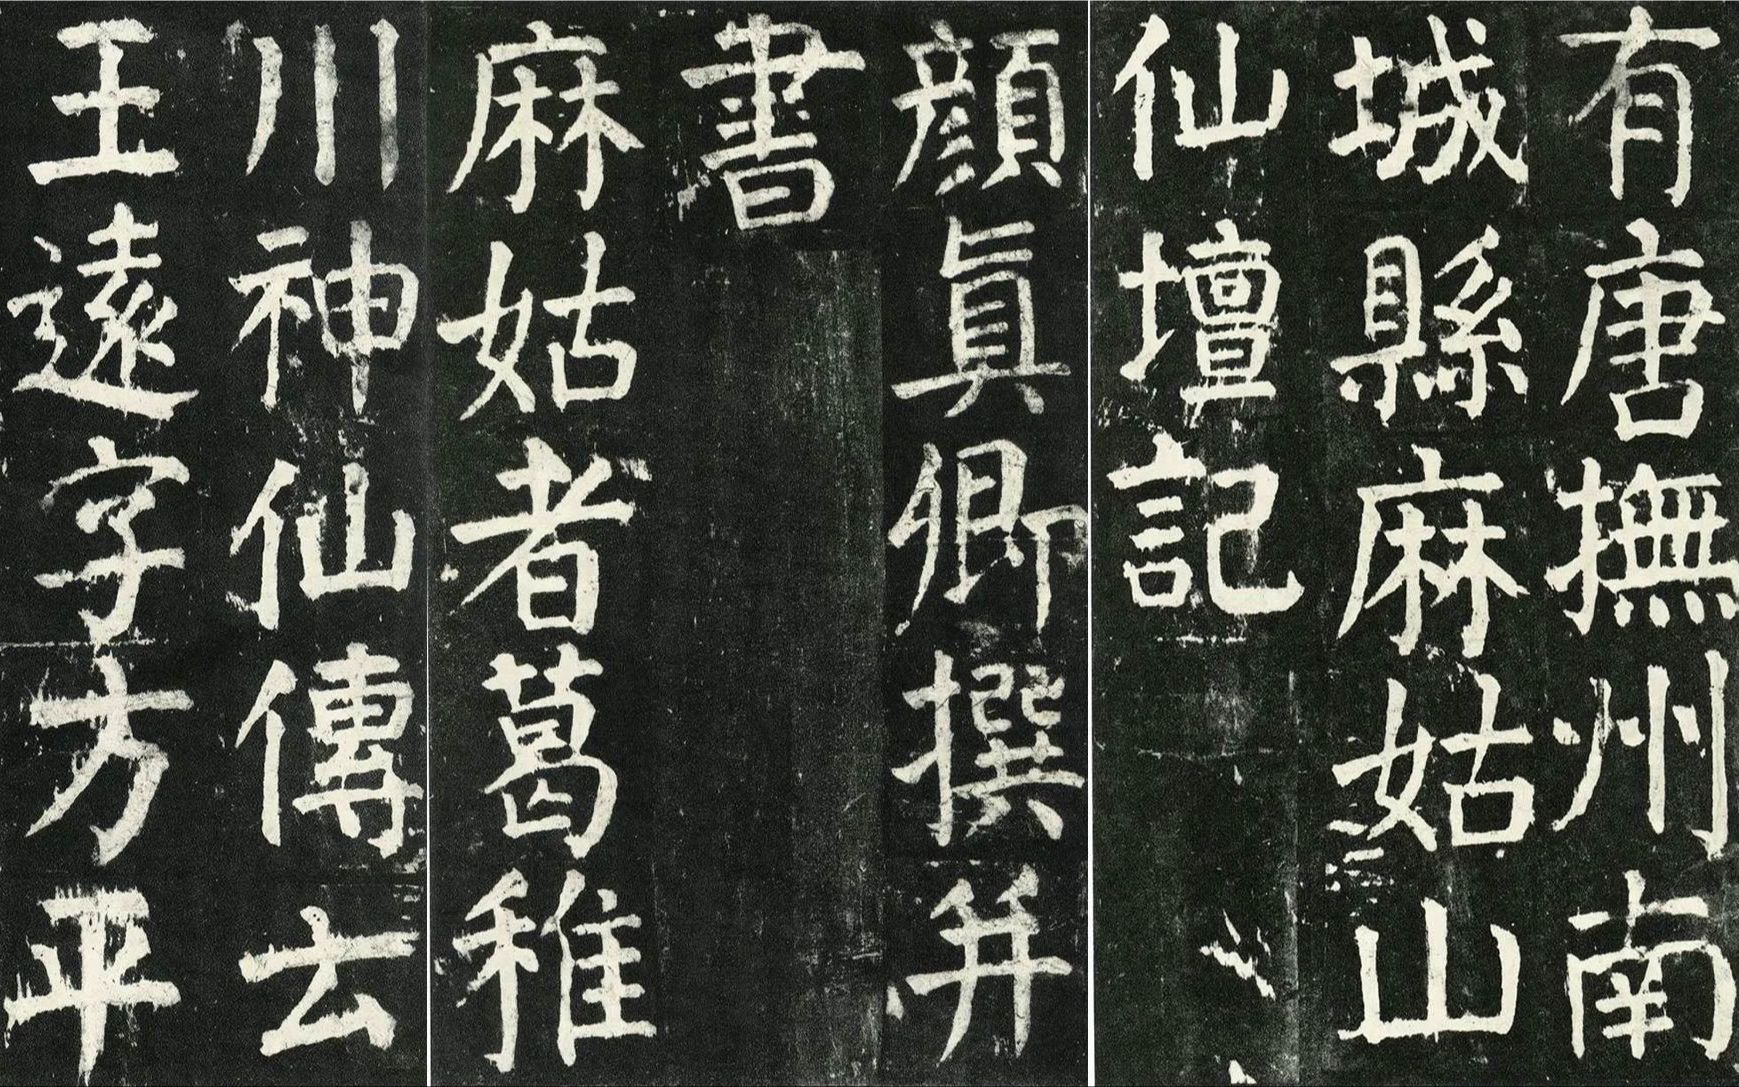 有唐撫州南
城縣麻姑山
仙壇記
顏真卿撰并
書
麻姑者葛稚
川神仙傳云
王遠字方平